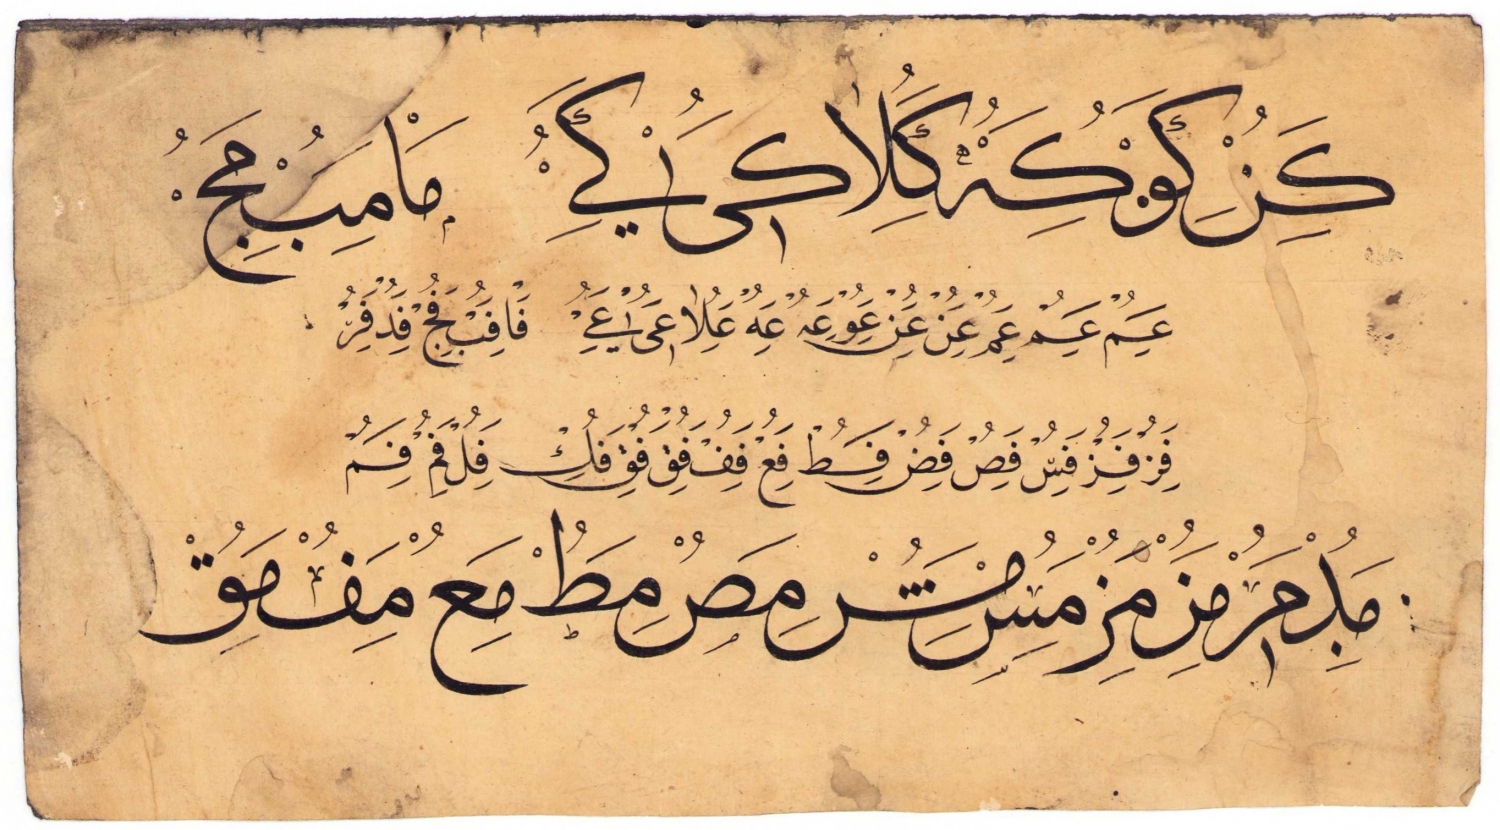 كن كو كه كه كلا كى كے ما مب مج
عم عم عم عن عن عو عه عه علا عى عے فا فب فج فد فر
فر فز فس فص فض فط فع فف فق فق فك فل فم فم
مد مر مز مز مس مش مص مط مع مف مق